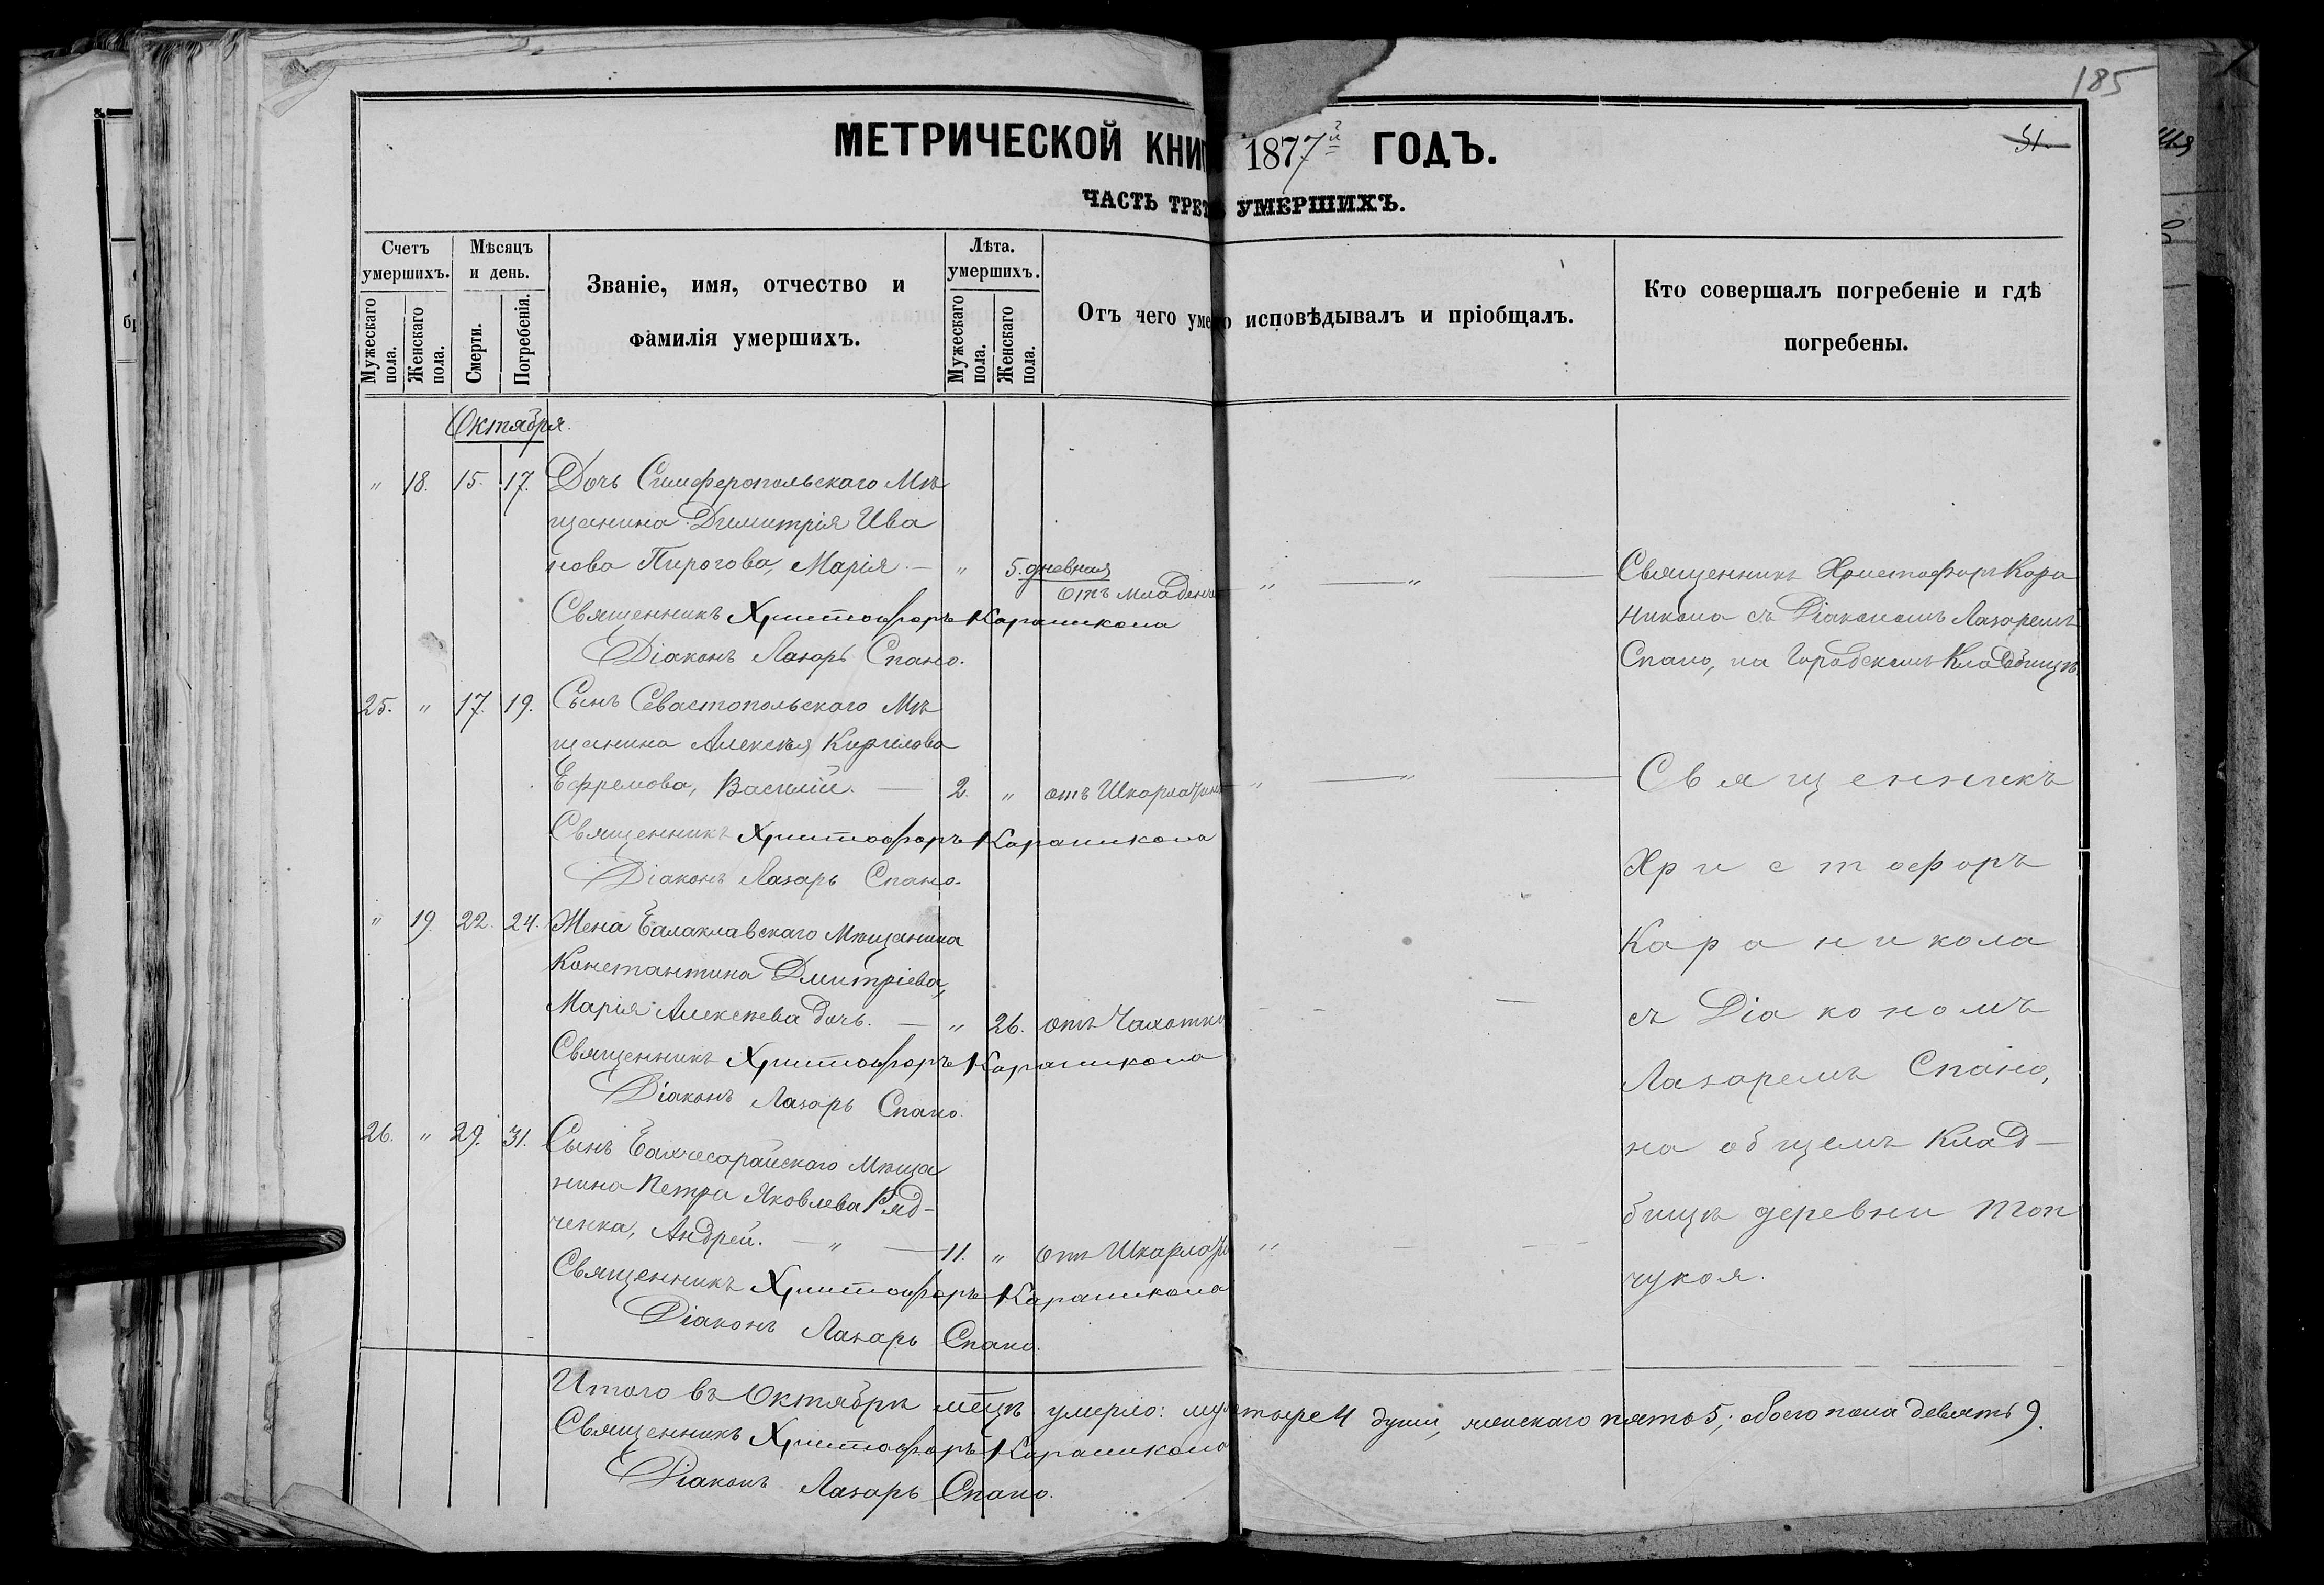 185
МЕТРИЧЕСКОЙ КНИГ 1877й ГОДЪ.
31.
ЧАСТЬ ТРЕТ УМЕРШИХЪ.
Счетъ умершихъ.
Мужескаго пола.
Женскаго пола.
Мѣсяцъ и день.
Смерти.
Погребенія.
Званіе, имя, отчество и
фамилія умершихъ.
Лѣта. умершихъ.
Мужескаго пола.
Женскаго пола.
Отъ чего уме
исповѣдывалъ и пріобщалъ.
Кто совершалъ погребеніе и гдѣ
погребены.
Октября.
" 18. 15. 17. Дочь Симферопольскаго Мѣ
щанина Димитрія Ива
нова Пирогова, Марія. — " 5. дневная
отъ младенче " — " —
Священникъ Христофоръ Кара
Священникъ Христофоръ Караникола
никола съ Діакономъ Лазаремъ
Діаконъ Лазарь Спано.
Спано, на Городскомъ Кладбищѣ.
25. " 17. 19. Сынъ Севастопольскаго Мѣ
щанина Алексѣя Кирилова
Ефремова, Василій. — 2. " отъ Шкарлатин " — " —
Священникъ Христофоръ Караникола
Діаконъ Лазарь Спано.
" 19. 22. 24. Жена Балаклавскаго Мѣщанина
Константина Дмитріева,
Марія Алексѣева дочь. — " 26. отъ Чахотки
Священникъ Христофоръ Караникола
Діаконъ Лазарь Спано.
26. " 29. 31. Сынъ Бахчесарайскаго Мѣща
нина Петра Яковлева Ряд-
ченка, Андрей. — " — 11. " отъ Шкарлати "
Священникъ Христофоръ Караникола
Діаконъ Лазарь Спано.
Священникъ
Христофоръ
Караникола
съ Діакономъ
Лазаремъ Спано,
на общемъ Клад-
бищѣ деревни Топ
чукоя.
Итого въ Октябрѣ мѣцѣ умерло: муж тыре 4 души, женскаго пять 5, обоего пола девять 9.
Священникъ Христофоръ Караникола
Діаконъ Лазарь Спано.